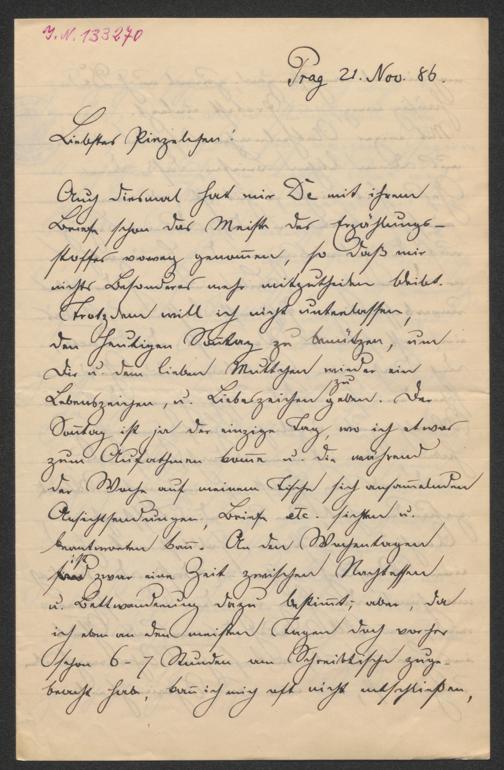 J.N. 133270
Prag 21. Nov. 86.
Liebstes Pinzelchen!
Auch diesmal hat mir De mit ihrem
Briefe schon das Meiste des Erzählungs-
stoffes vorweg genommen, so daß mir
nichts Besonderes mehr mitzutheilen bleibt.
Trotzdem will ich nicht unterlassen,
den heutigen Sonntag zu benützen, um
Dir u. dem lieben Muttchen wieder ein
Lebenszeichen, u. Liebeszeichen zu geben. Der
Sonntag ist ja der einzige Tag, wo ich etwas
zum Aufathmen komme u. die während
der Woche auf meinem Tische sich ansammelnden
Ansichtsendungen, Briefe etc. sichten u.
beantworten kann. An den Wochentagen
ist zwar eine Zeit zwischen Nachtessen
u. Bettwanderung dazu bestimmt; aber, da
ich eben an den meisten Tagen doch vorher
schon 6-7 Stunden am Schreibtische zuge-
bracht hab, kann ich mich oft nicht entschließen,